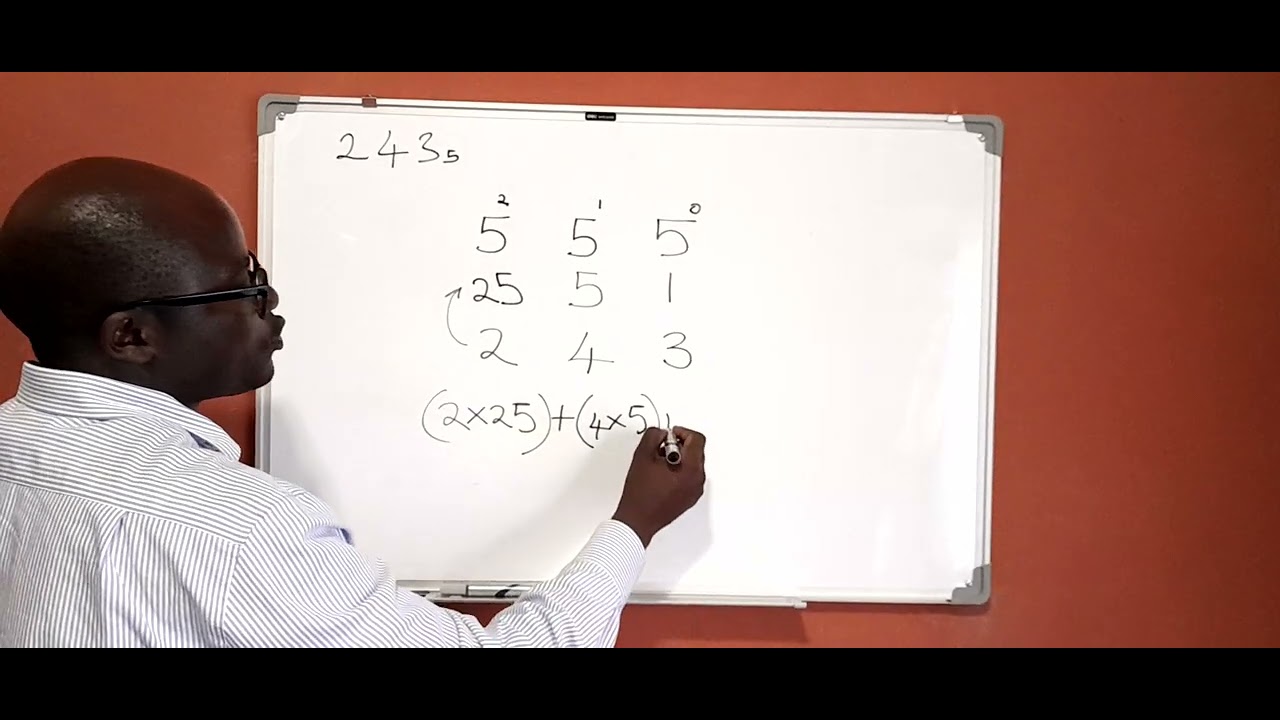 243₅
5² 5¹ 5⁰
25 5 1
2 4 3
(2×25)+(4×5)